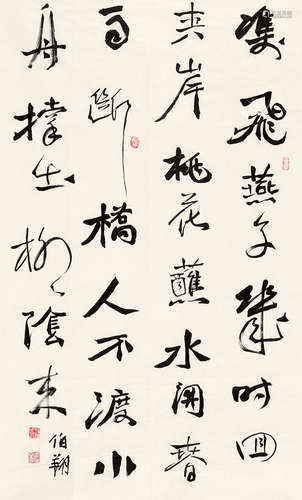 雙飛燕子幾时回
夾岸桃花蘸水開春
雨斷橋人不渡小
舟撑出柳陰来
伯翔